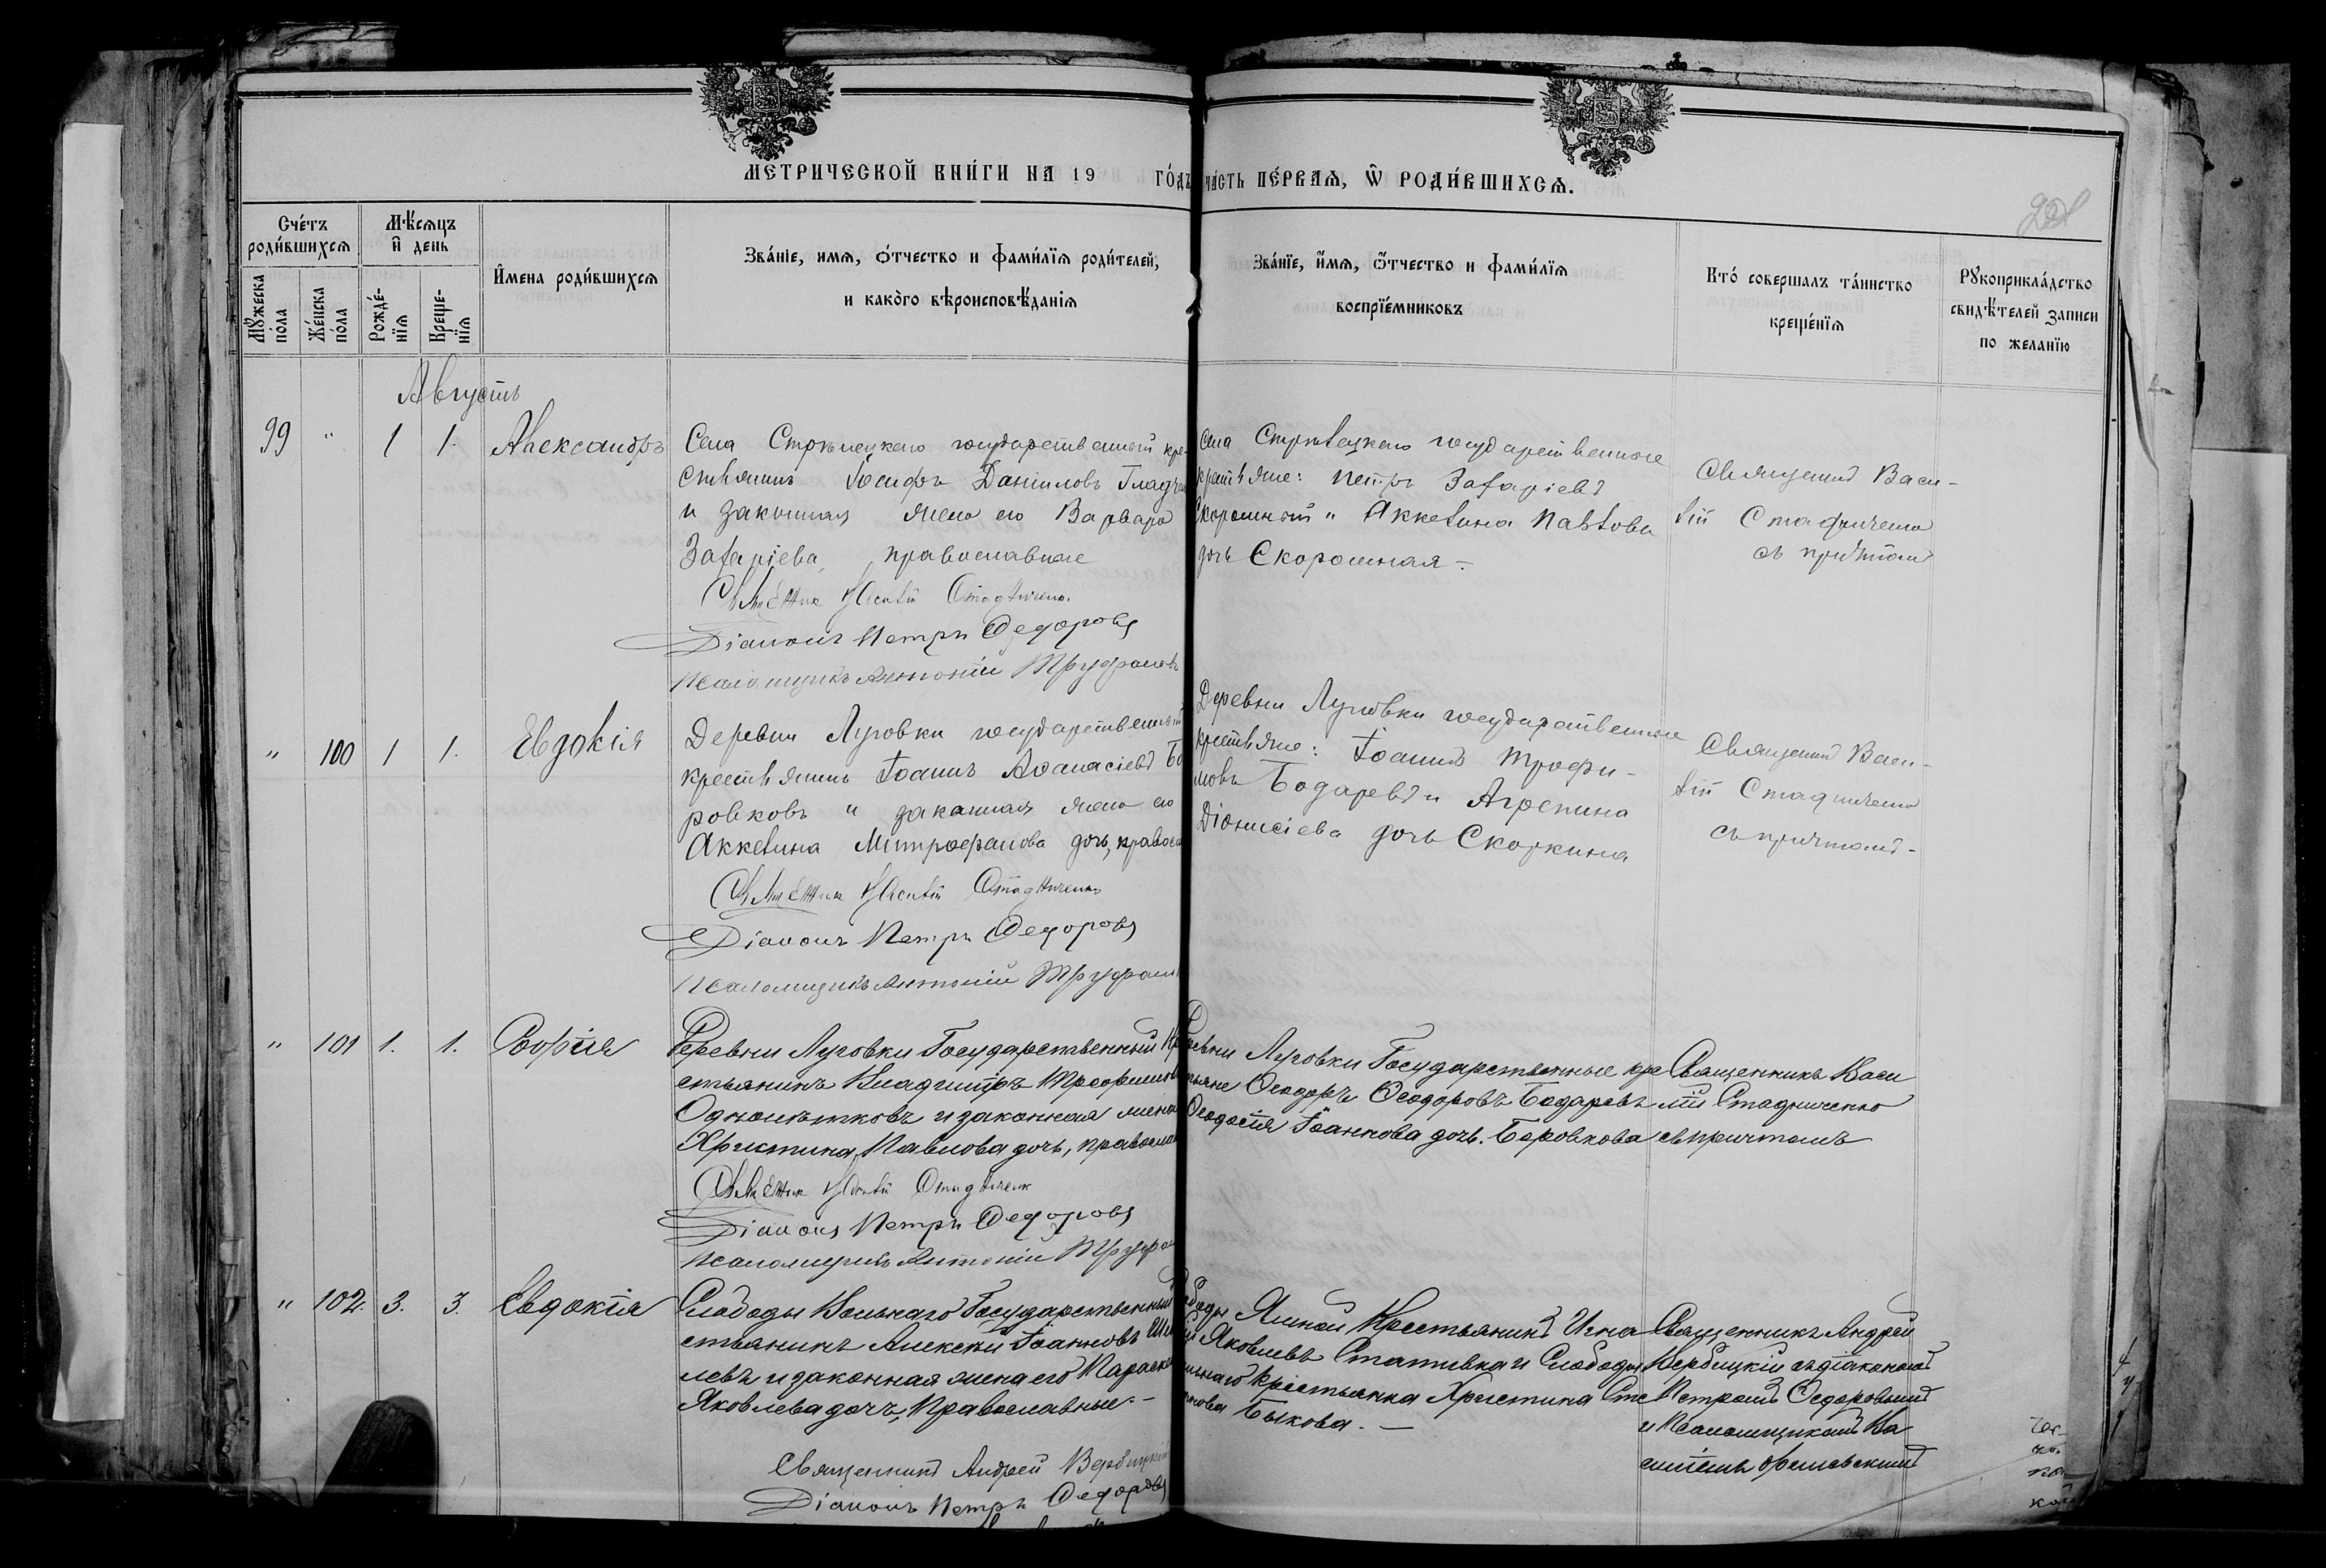 МЕТРИЧЕСКОЙ КНИ́ГИ НА 19 ГО́ДЪ ЧА́СТЬ ПЕ́РВАЯ, Ѿ РОДИ́ВШИХСЯ.
Сче́тъ роди́вшихся
Мѣ́сяцъ и҆ день
И҆мена роди́вшихся
Зва́нїе, имя, о́тчество и фами́лїя роди́телей,
и како́го вѣроисповѣ́данїя
Зва́нїе, и҆мя, ѻ҆тчество и фами́лїя
воспрїе́мниковъ
Кто́ совершалъ та́инство
креще́нїя
Рꙋкоприкла́дство
свидѣ́телей записи
по желанїю
Мꙋ́жеска по́ла
Же́нска по́ла
Рожде́-нїя
Креще-нїя
Августъ
99 " 1 1. Александръ
Села Стрѣлецкаго государственный кре-
стьянинъ Іосифъ Даніиловъ
и законная жена его Варвара
Захаріева, православные
Священник Василій Стадниченко.
Діаконъ Петръ Федоровъ
Псаломщикъ Антоній Труфановъ
Села Стрѣлецкаго государственные
крестьяне: Петръ Захаріевъ
Скорошный и Аккелина Павлова
дочь Скорошная –
Священникъ Васи-
лій Стадниченко
съ причтомъ
" 100 1 1. Евдокія
Деревни Луговки государственный
крестьянинъ Іоаннъ Аѳанасіевъ Бо
ровковъ и законная жена его
Аккелина Митрофанова дочь, правосл
Священник Василій Стадниченко
Діаконъ Петръ Федоровъ
Псаломщикъ Антоній Труфанов
Деревни Луговки государственные
крестьяне: Іоаннъ Трофи-
мовъ Бодаревъ и Агрепина
Діонисіева дочь Скоркина
Священникъ Васи-
лій Стадниченко
съ причтомъ –
" 101 1. 1. Софія
Деревни Луговки Государственный Кре
стьянинъ Владимiръ Трофимовъ
Однолѣтковъ и законная жена
Христина Павлова дочь, правосла
Священник Василій Стадниченк
Діаконъ Петръ Федоровъ
Псаломщикъ Антоній Труфан
Деревни Луговки Государственные кре
стьяне Ѳеодоръ Ѳеодоровъ Бодаревъ
Ѳеодосія Іоаннова дочь. Боровкова
Священникъ Васи
лій Стадниченко
съ причтомъ
" 102. 3. 3. Евдокія
Слободы Вольнаго Государственный
стьянинъ Алексѣй Іоанновъ
левъ и законная жена его Параске
Яковлева дочь, Православные. –
Священникъ Андрей Вербицкій
Діаконъ Петръ Федоровъ
Слободы Ямной Крестьянинъ Игна
тій Яковлевъ Стативка и Слободы
Вольнаго Крестьянка Христина Сте
панова Быкова. –
Священникъ Андрей
Вербицкій съ діакономъ
Петромъ Ѳедоровымъ
и Псаломщикомъ Ва
силіемъ